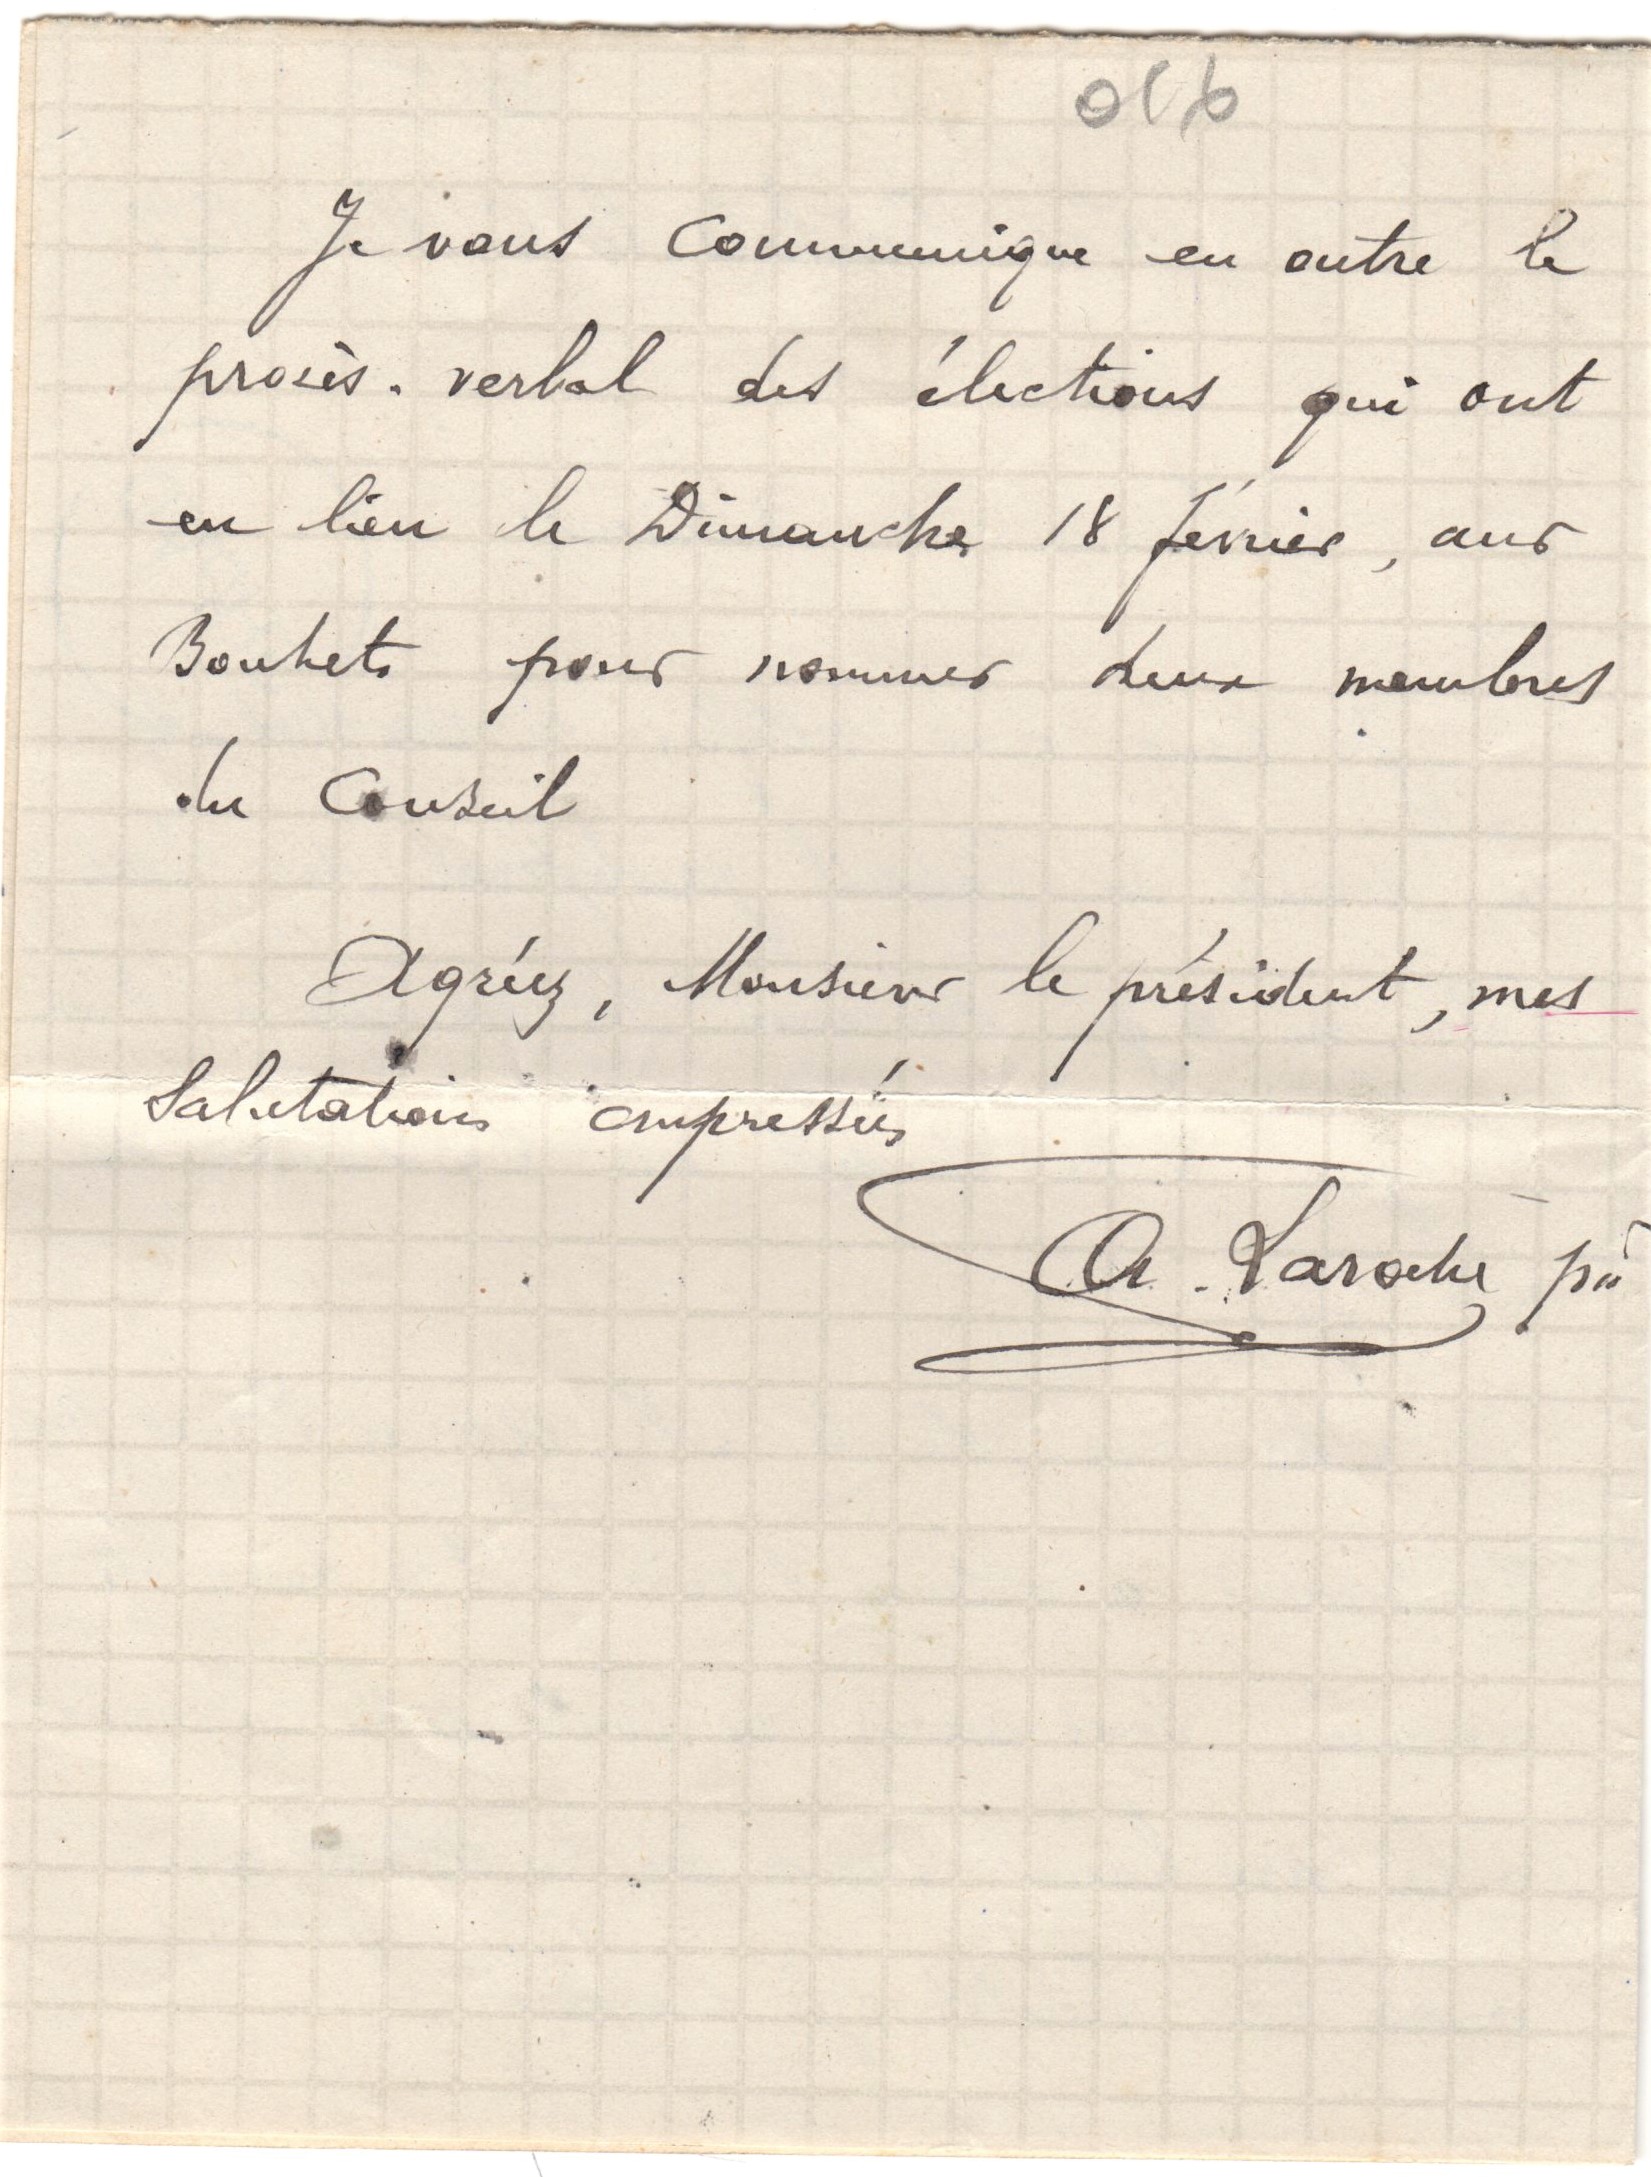 Je vous communique en outre le
procès-verbal des élections qui ont
eu lieu le Dimanche 18 février, aux
Bouhets pour nommer deux membres
du Conseil
Agréez, Monsieur le président, mes
Salutations empressées
A. Laroche